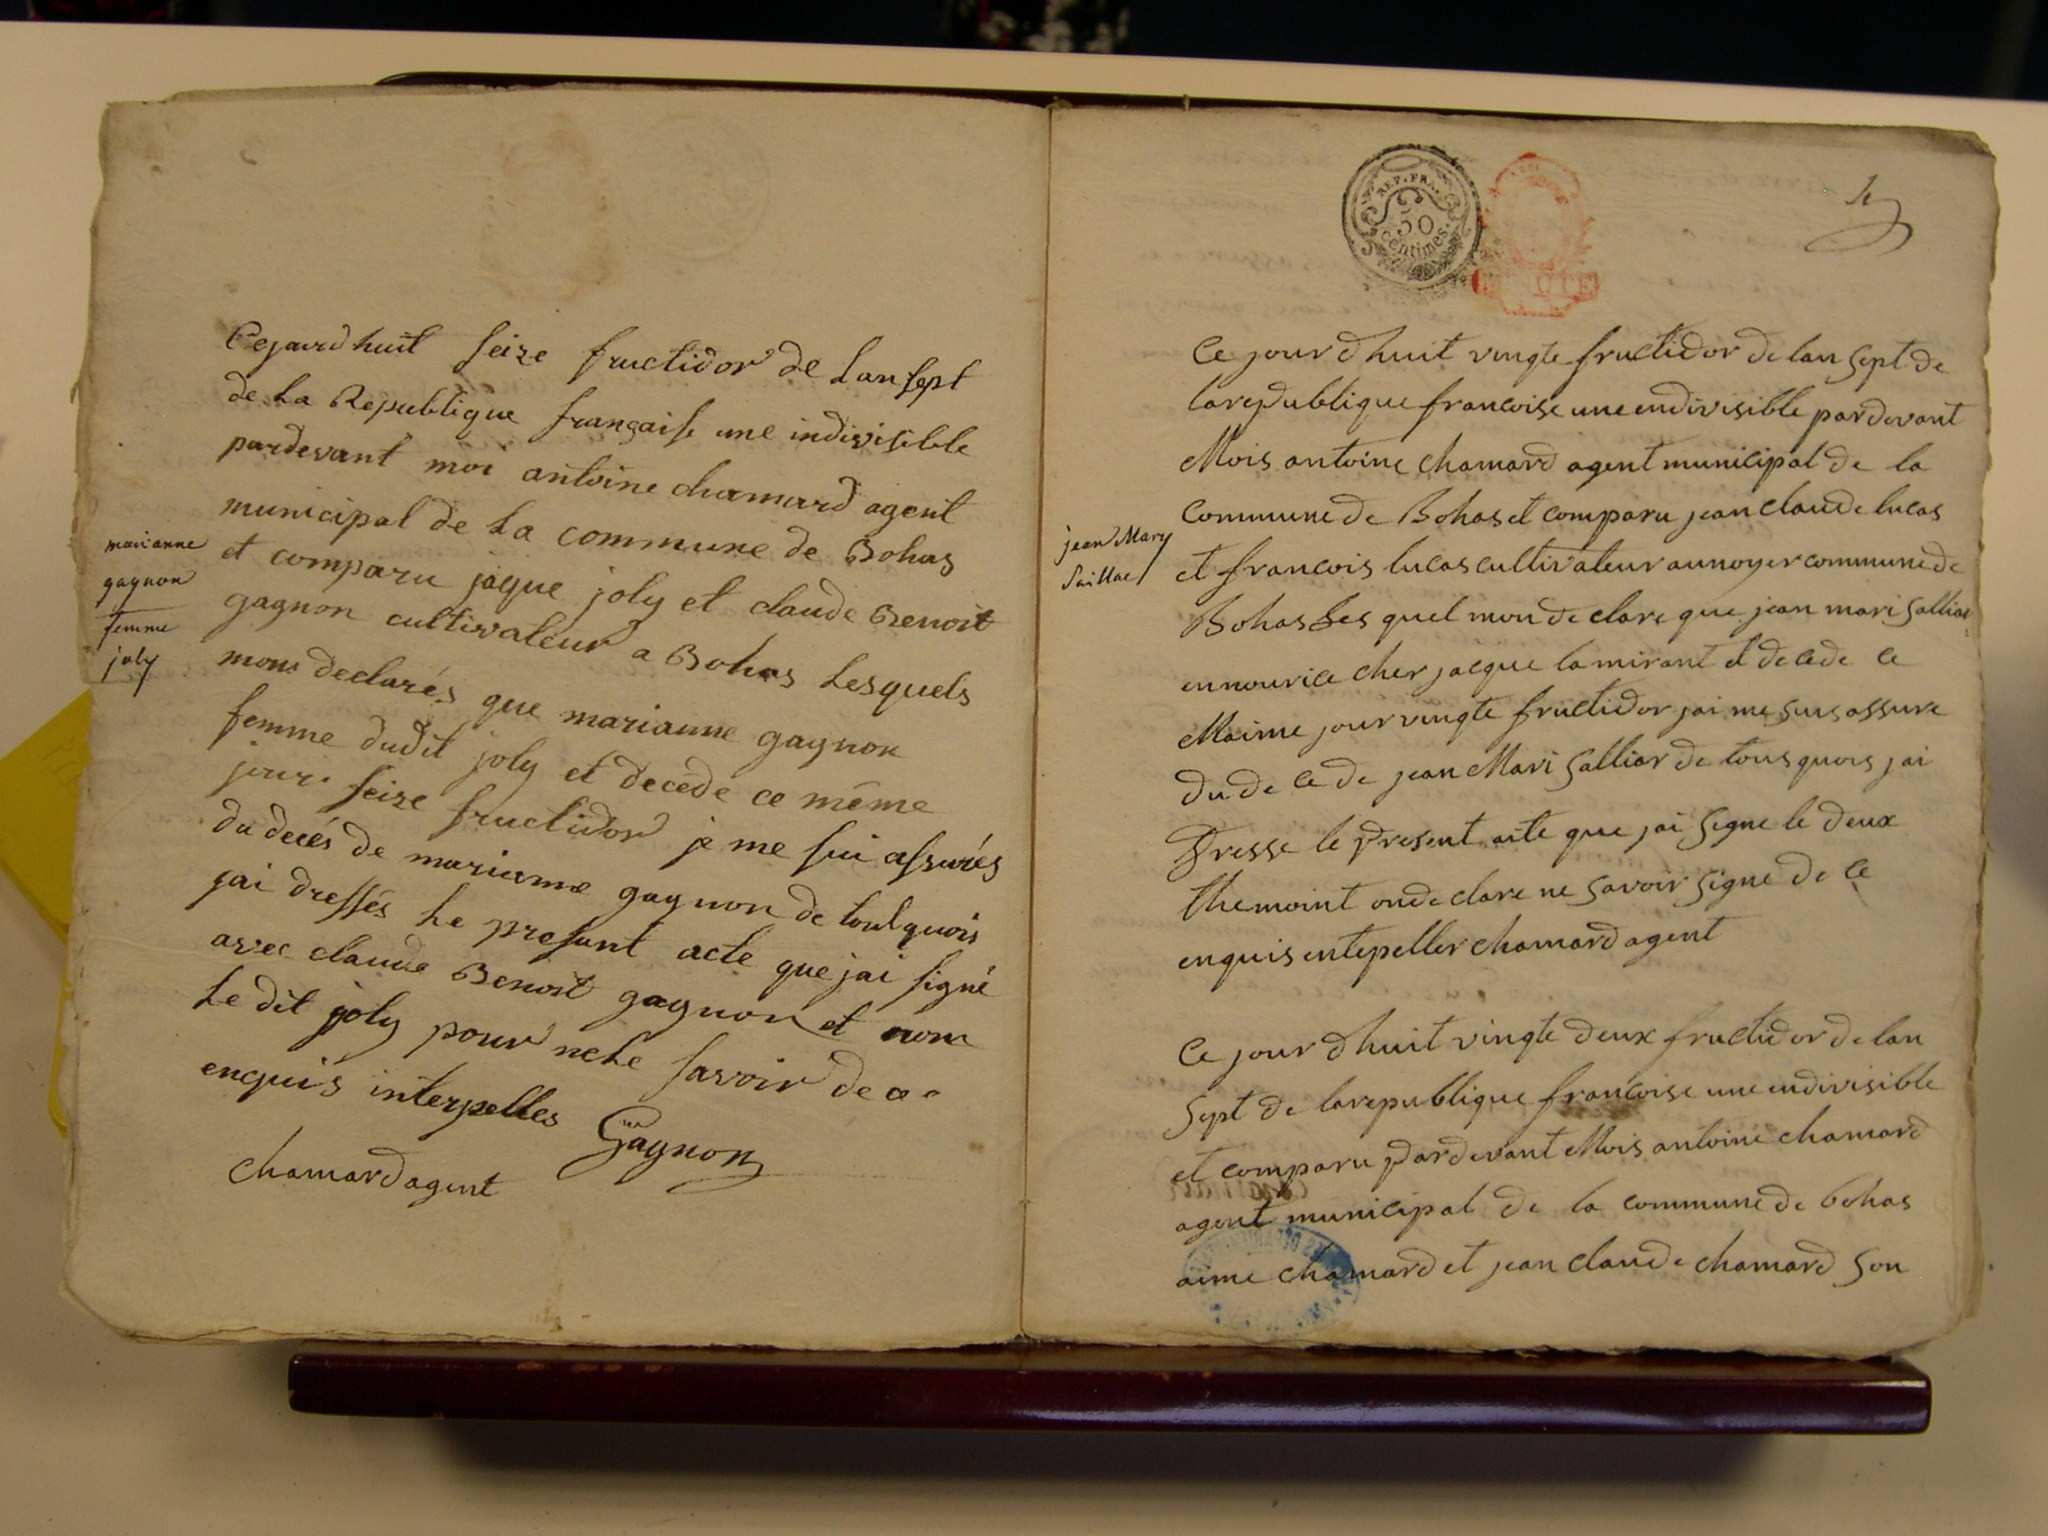 Cejourdhuit seize fructidor de Lan sept
de La Republique française une indivisible
pardevant moi antoine chamard agent
municipal de La commune de Bohas
et comparu jaque joly et claude Benoit
gagnon cultivateur a Bohas Lesquels
mont declarés que marianne gagnon
femme dudit joly et decede ce même
jour seize fructidor je me sui assurés
du decés de marianne gagnon de toutquois
jai dressés Le present acte que jai signé
avec claude Benoit gagnon et non
Le dit joly pour neLe savoir de ce
enquis interpelles
Gagnon
chamard agent
marianne
gagnon
femme
joly
REP. FRA.
50
centimes.
4
Ce jour dhuit vingte fructidor de lan sept de
larepublique francoise une endivisible pardevant
Mois antoine chamard agent municipal de la
commune de Bohas et comparu jean claude lucas
et francois lucas cultivateur aunoyer commune de
Bohas Les quel mon de clare que jean mari salliar
ennourice cher jacque lamirant et decede ce
Maime jour vingte fructidor jai me suis assure
du de ce de jean Mari salliar de tous quois jai
Dresse le present aite que jai signe le deux
themoint onde clare ne savoir signe de ce
enquis entepeller chamard agent
jean Mary
Saillac
Ce jour dhuit vingte deux fructidor de lan
sept de larepublique francoise une endivisible
et comparu pardevant Mois antoine chamard
agent municipal de la commune de bohas
aime chamard et jean claude chamard son